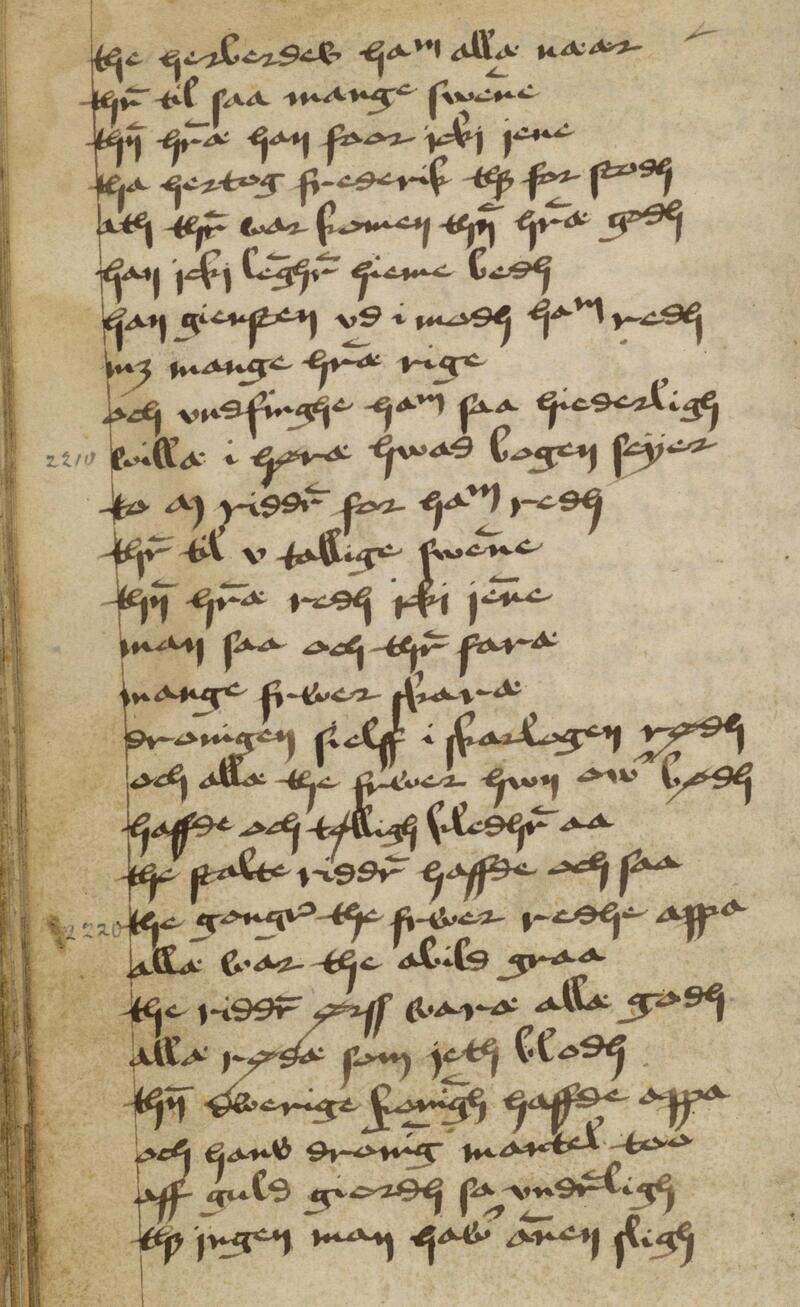 the herberdeb ham allæ naar
thr̄ til saa mange swēne
thn̄ hr̄æ han foor icki iene
tha hertog frederik thz for stodh
ath thr̄ war komen thn̄ hr̄æ godh
han icki lēghr̄ hieme bedh
han giensten vd i modh ham redh
mz mange hr̄æ rige
och vndfinghe ham saa hiederligh
2210 willæ i høræ hwad bogen seyer
to m riddr̄ for ham redh
thr̄ til v tallige swēne
thn̄ hr̄æ redh icki iēne
man saa och thr̄ faræ
mange frwer skaræ
dronigen sielff i skarlagen rødh
och allæ the frwer hwn ow̓ bødh
haffde och tølligh kledhr̄ aa
the stalte riddr̄ haffde och saa
2220 the gongr̓ the frwer redhe appa
allæ war the abild graa
the riddr̄ ørss waræ allæ godh
allæ rødæ som ieth blodh
thn̄ dwerige konīgh haffde appa
och hans dronīg mantel too
aff guld giordh sa vndr̄ligh
thz ingen man haw̓ ānen sligh